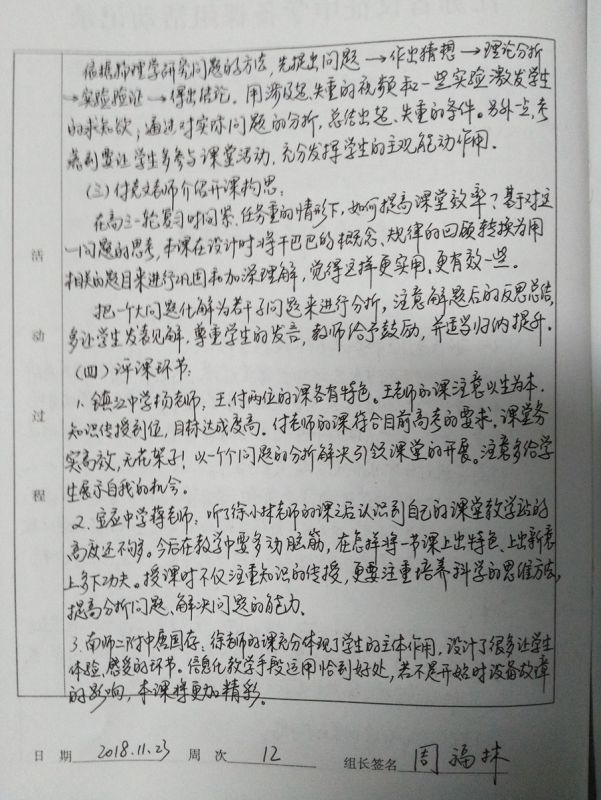 依据物理学研究问题的方法,先提出问题→作出猜想→理论分析
→实验验证→得出结论。用涉及超、失重的视频和一些实验激发学生
的求知欲;通过对实际问题的分析,总结出超、失重的条件。另外一点,考
虑到要让学生多参与课堂活动,充分发挥学生的主观能动作用。
(三)付克文老师介绍开课构思:
在高三一轮复习时间紧、任务重的情形下,如何提高课堂效率?基于对这
一问题的思考,本课在设计时将干巴巴的概念、规律的回顾转换为用
相关的题目来进行巩固和加深理解,觉得这样更实用、更有效一些。
把一个大问题化解为若干子问题来进行分析,注意解题后的反思总结,
多让学生发表见解,尊重学生的发言,教师给予鼓励,并适当归纳提升。
(四)评课环节:
1、镇江中学杨老师:王、付两位的课各有特色。王老师的课注意以生为本,
知识传授到位,目标达成度高。付老师的课符合目前高考的要求,课堂务
实高效,无花架子!以一个个问题的分析解决引领课堂的开展。注意多给学
生展示自我的机会。
2、宝应中学蒋老师:听了徐小林老师的课之后认识到自己的课堂教学站的
高度还不够。今后在教学中要多动脑筋,在怎样将一节课上出特色、上出新意
上多下功夫。授课时不仅注重知识的传授,更要注重培养科学的思维方法,
提高分析问题、解决问题的能力。
3、南师二附中唐国存:徐老师的课充分体现了学生的主体作用,设计了很多让学生
体验、感受的环节。信息化教学手段运用恰到好处,若不是开始时设备故障
的影响,本课将更加精彩。
活
动
过
程
日 期 2018.11.23 周 次 12 组长签名 周福林